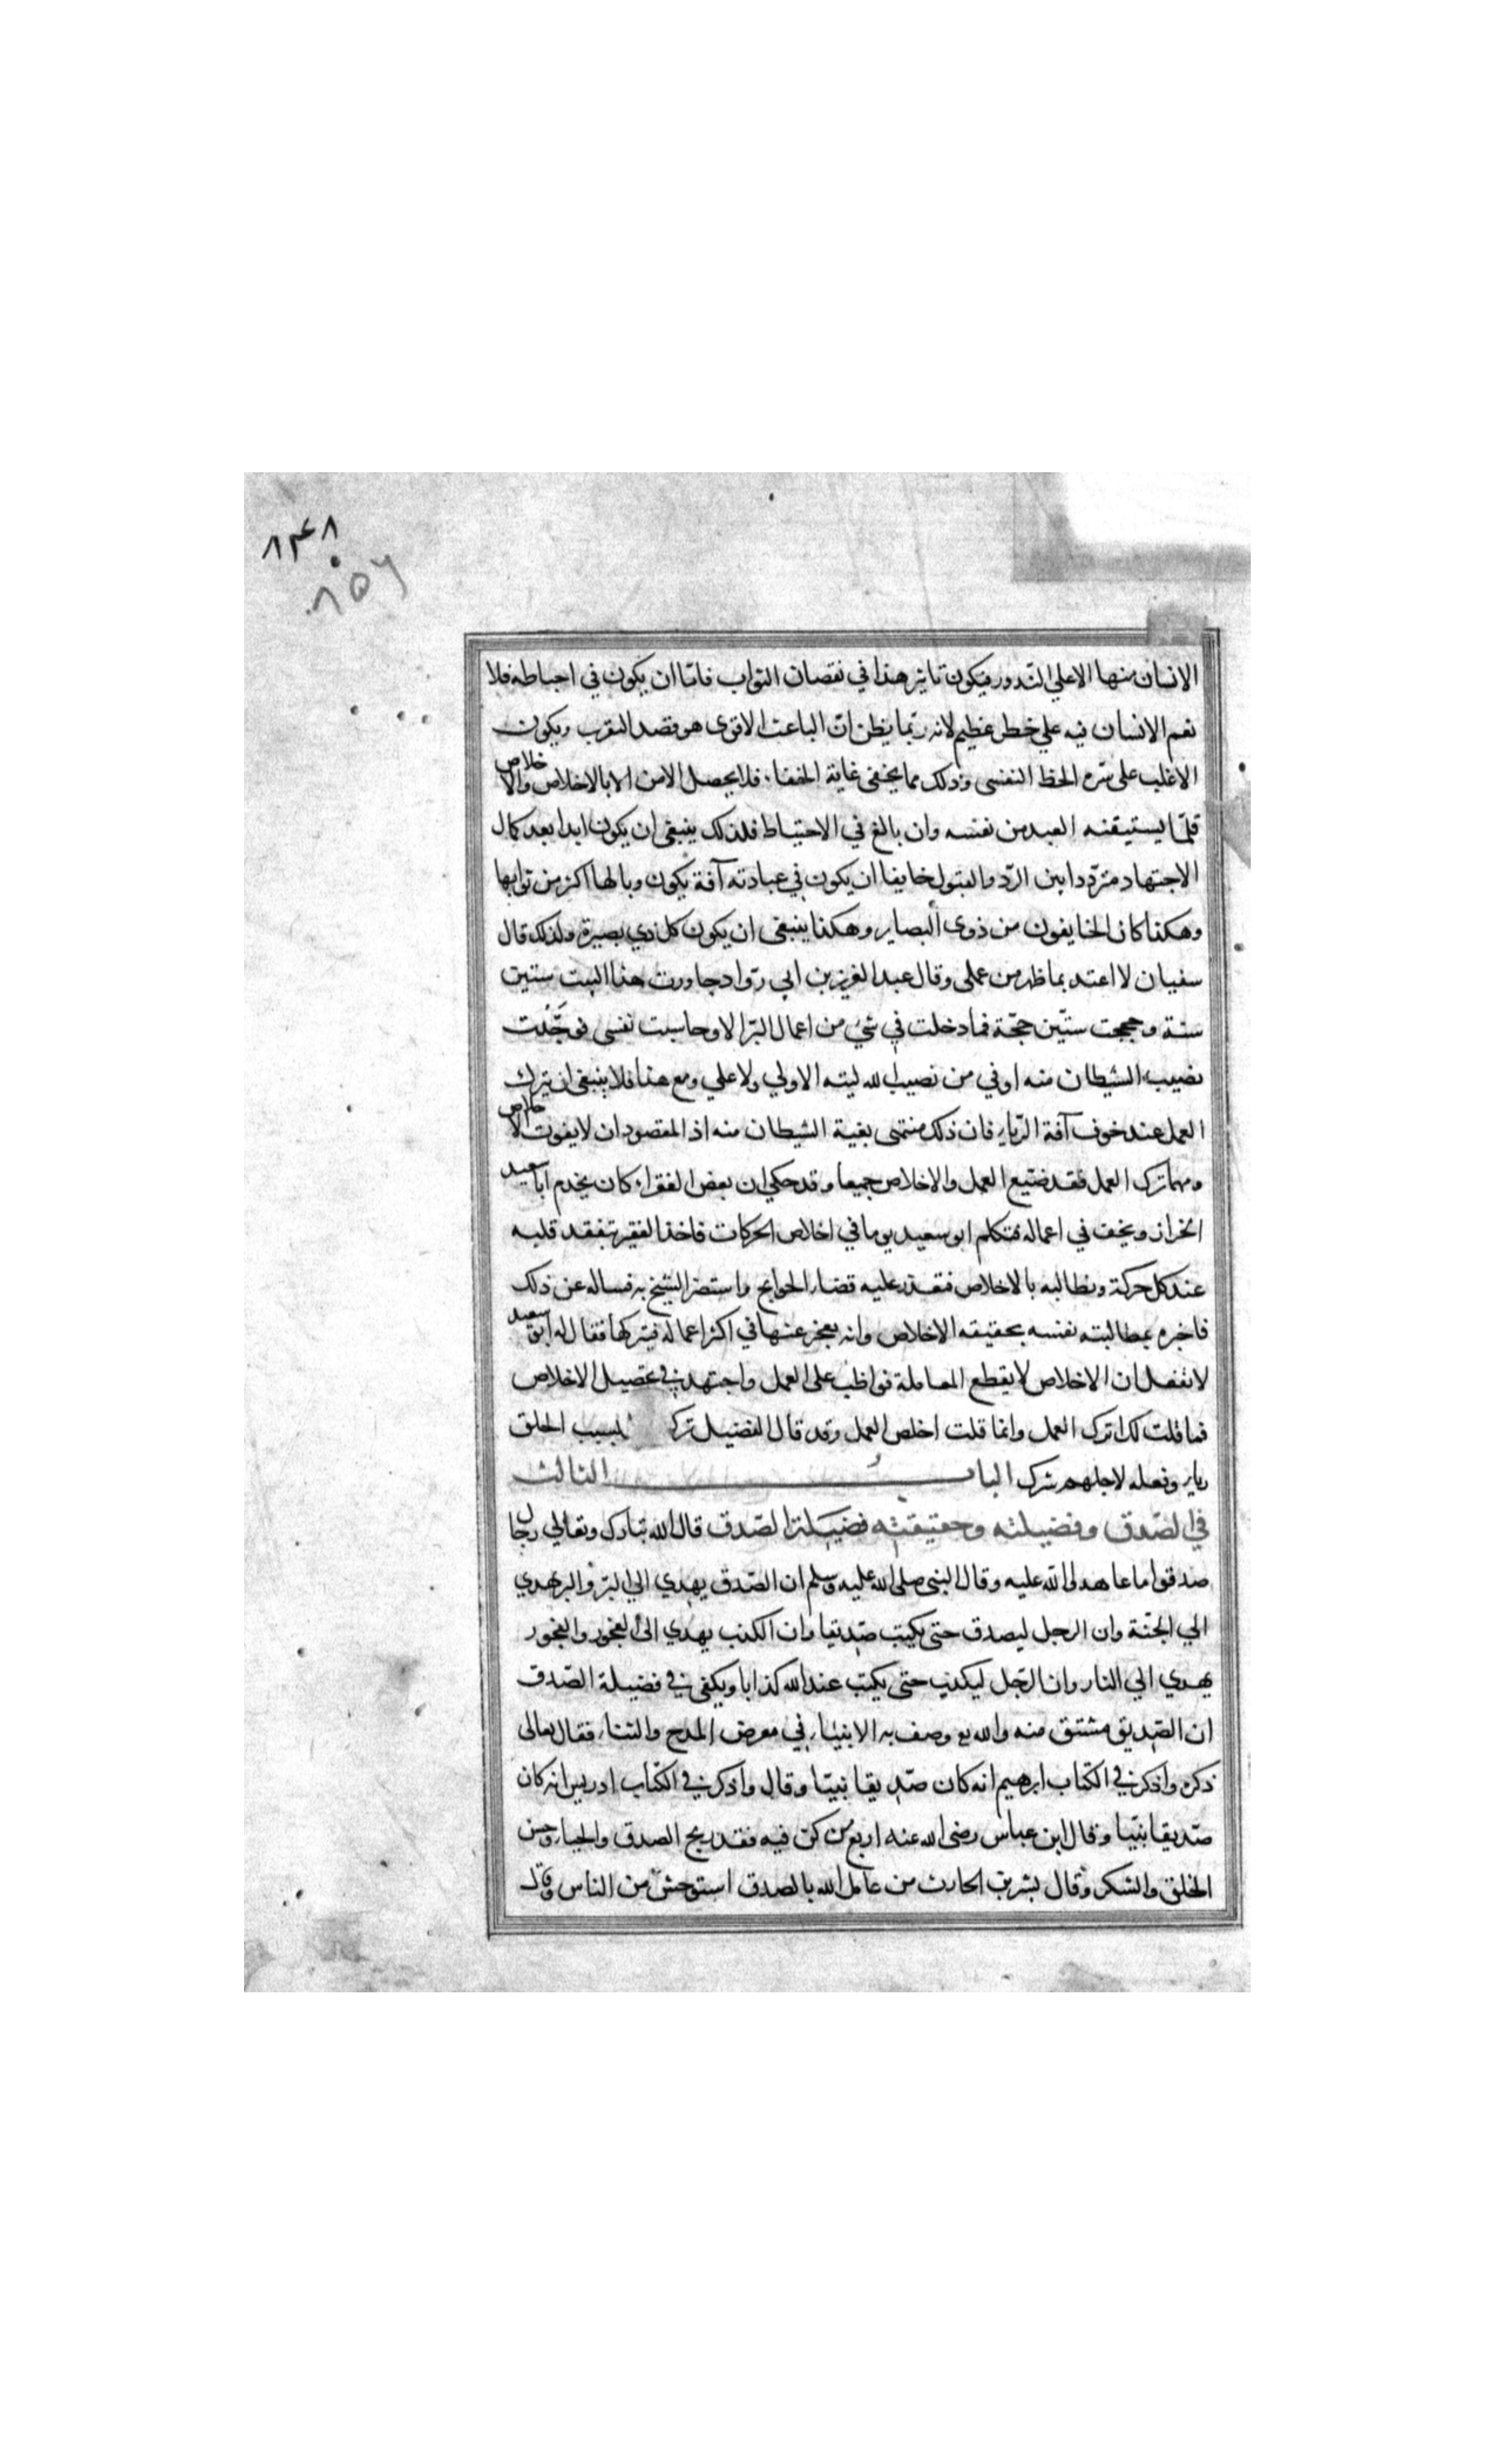 ٨٣٤٨
٨٥٦
الانسان منها الاعلي الندور فيكون تاثير هذا في نقصان الثواب فامّا ان يكون في احباطه فلا
نعم الانسان فيه علي خطر عظيم لانه ربّما يظن انّ الباعث الاقوى هو قصد التقرب ويكون
الاغلب على سّره الحظ النفسى وذلك مما يخفى غاية الخفاء فلا يحصل الامن الا بالاخلاص والاخلاص
قلّما يستيقنه العبد من نفسه وان بالغ في الاحتياط فلذلك ينبغى ان يكون ابدا بعد كمال
الاجتهاد متردّدا بين الردّ والقبول خايفا ان يكون في عبادته آفة يكون وبالها اكثر من ثوابها
وهكذا كان الخايفون من ذوى البصاير وهكذا ينبغى ان يكون كل ذي بصيرة ولذلك قال
سفيان لا اعتد بما ظهر من عملى وقال عبد العزيز بن ابي روّاد جاورت هذا البيت ستين
سنة وحججت ستّين حجّة فما دخلت في شيء من اعمال البرّ الا وحاسبت نفسى فوجّدت
نصيب الشيطان منه اوفي من نصيب الله ليته الاولي ولا علي ومع هذا فلا ينبغى ان يترك
العمل عند خوف آفة الرّياء فان ذلك منتهى بغية الشيطان منه اذ المقصود ان لا يفوت الاخلاص
ومهما ترك العمل فقد ضيّع العمل والاخلاص جميعا وقد حكي ان بعض الفقراء كان يخدم ابا سعيد
الخراز ويخف في اعماله فتكلم ابو سعيد يوما في اخلاص الحركات فاخذ الفقير يتفقد قلبه
عند كل حركة ويطالبه بالاخلاص فتعذر عليه قضاء الحوايج واستضر الشيخ به فساله عن ذلك
فاخبره بمطالبته نفسه بحقيقه الاخلاص وانه يعجز عنها في اكثر اعماله فيتركها فقال له ابو سعيد
لا تفعل ان الاخلاص لا يقطع المعاملة فواظب على العمل واجتهد في تحصيل الاخلاص
فما قلت لك اترك العمل وانما قلت اخلص العمل وقد قال الفضيل ترك بسبب الخلق
رياء وفعله لاجلهم شرك الباب الثالث
في الصّدق وفضيلته وحقيقته فضيلة الصّدق قال الله تبارك وتعالي رجال
صدقوا ما عاهدوا الله عليه وقال النبى صلى الله عليه وسلم ان الصّدق يهدي الي البرّ والبر يهدي
الي الجنّة وان الرجل ليصدق حتى يكتب صدّيقا وان الكذب يهدي الى الفجور والفجور
يهدي الي النار وان الرّجل ليكذب حتى يكتب عند الله كذابا ويكفى في فضيلة الصّدق
ان الصّديق مشتق منه والله تع وصف به الانبياء في معرض المدح والثناء فقال تعالى
ذكره واذكر في الكتاب ابرهيم انه كان صّديقا نبيّا وقال واذكر في الكتاب ادريس انه كان
صّديقا نبيّا وقال ابن عباس رضى الله عنه اربع من كن فيه فقد ربح الصدق والحياء وحسن
الخلق والشكر وقال بشر بن الحارث من عامل الله بالصدق استوحش من الناس وقال